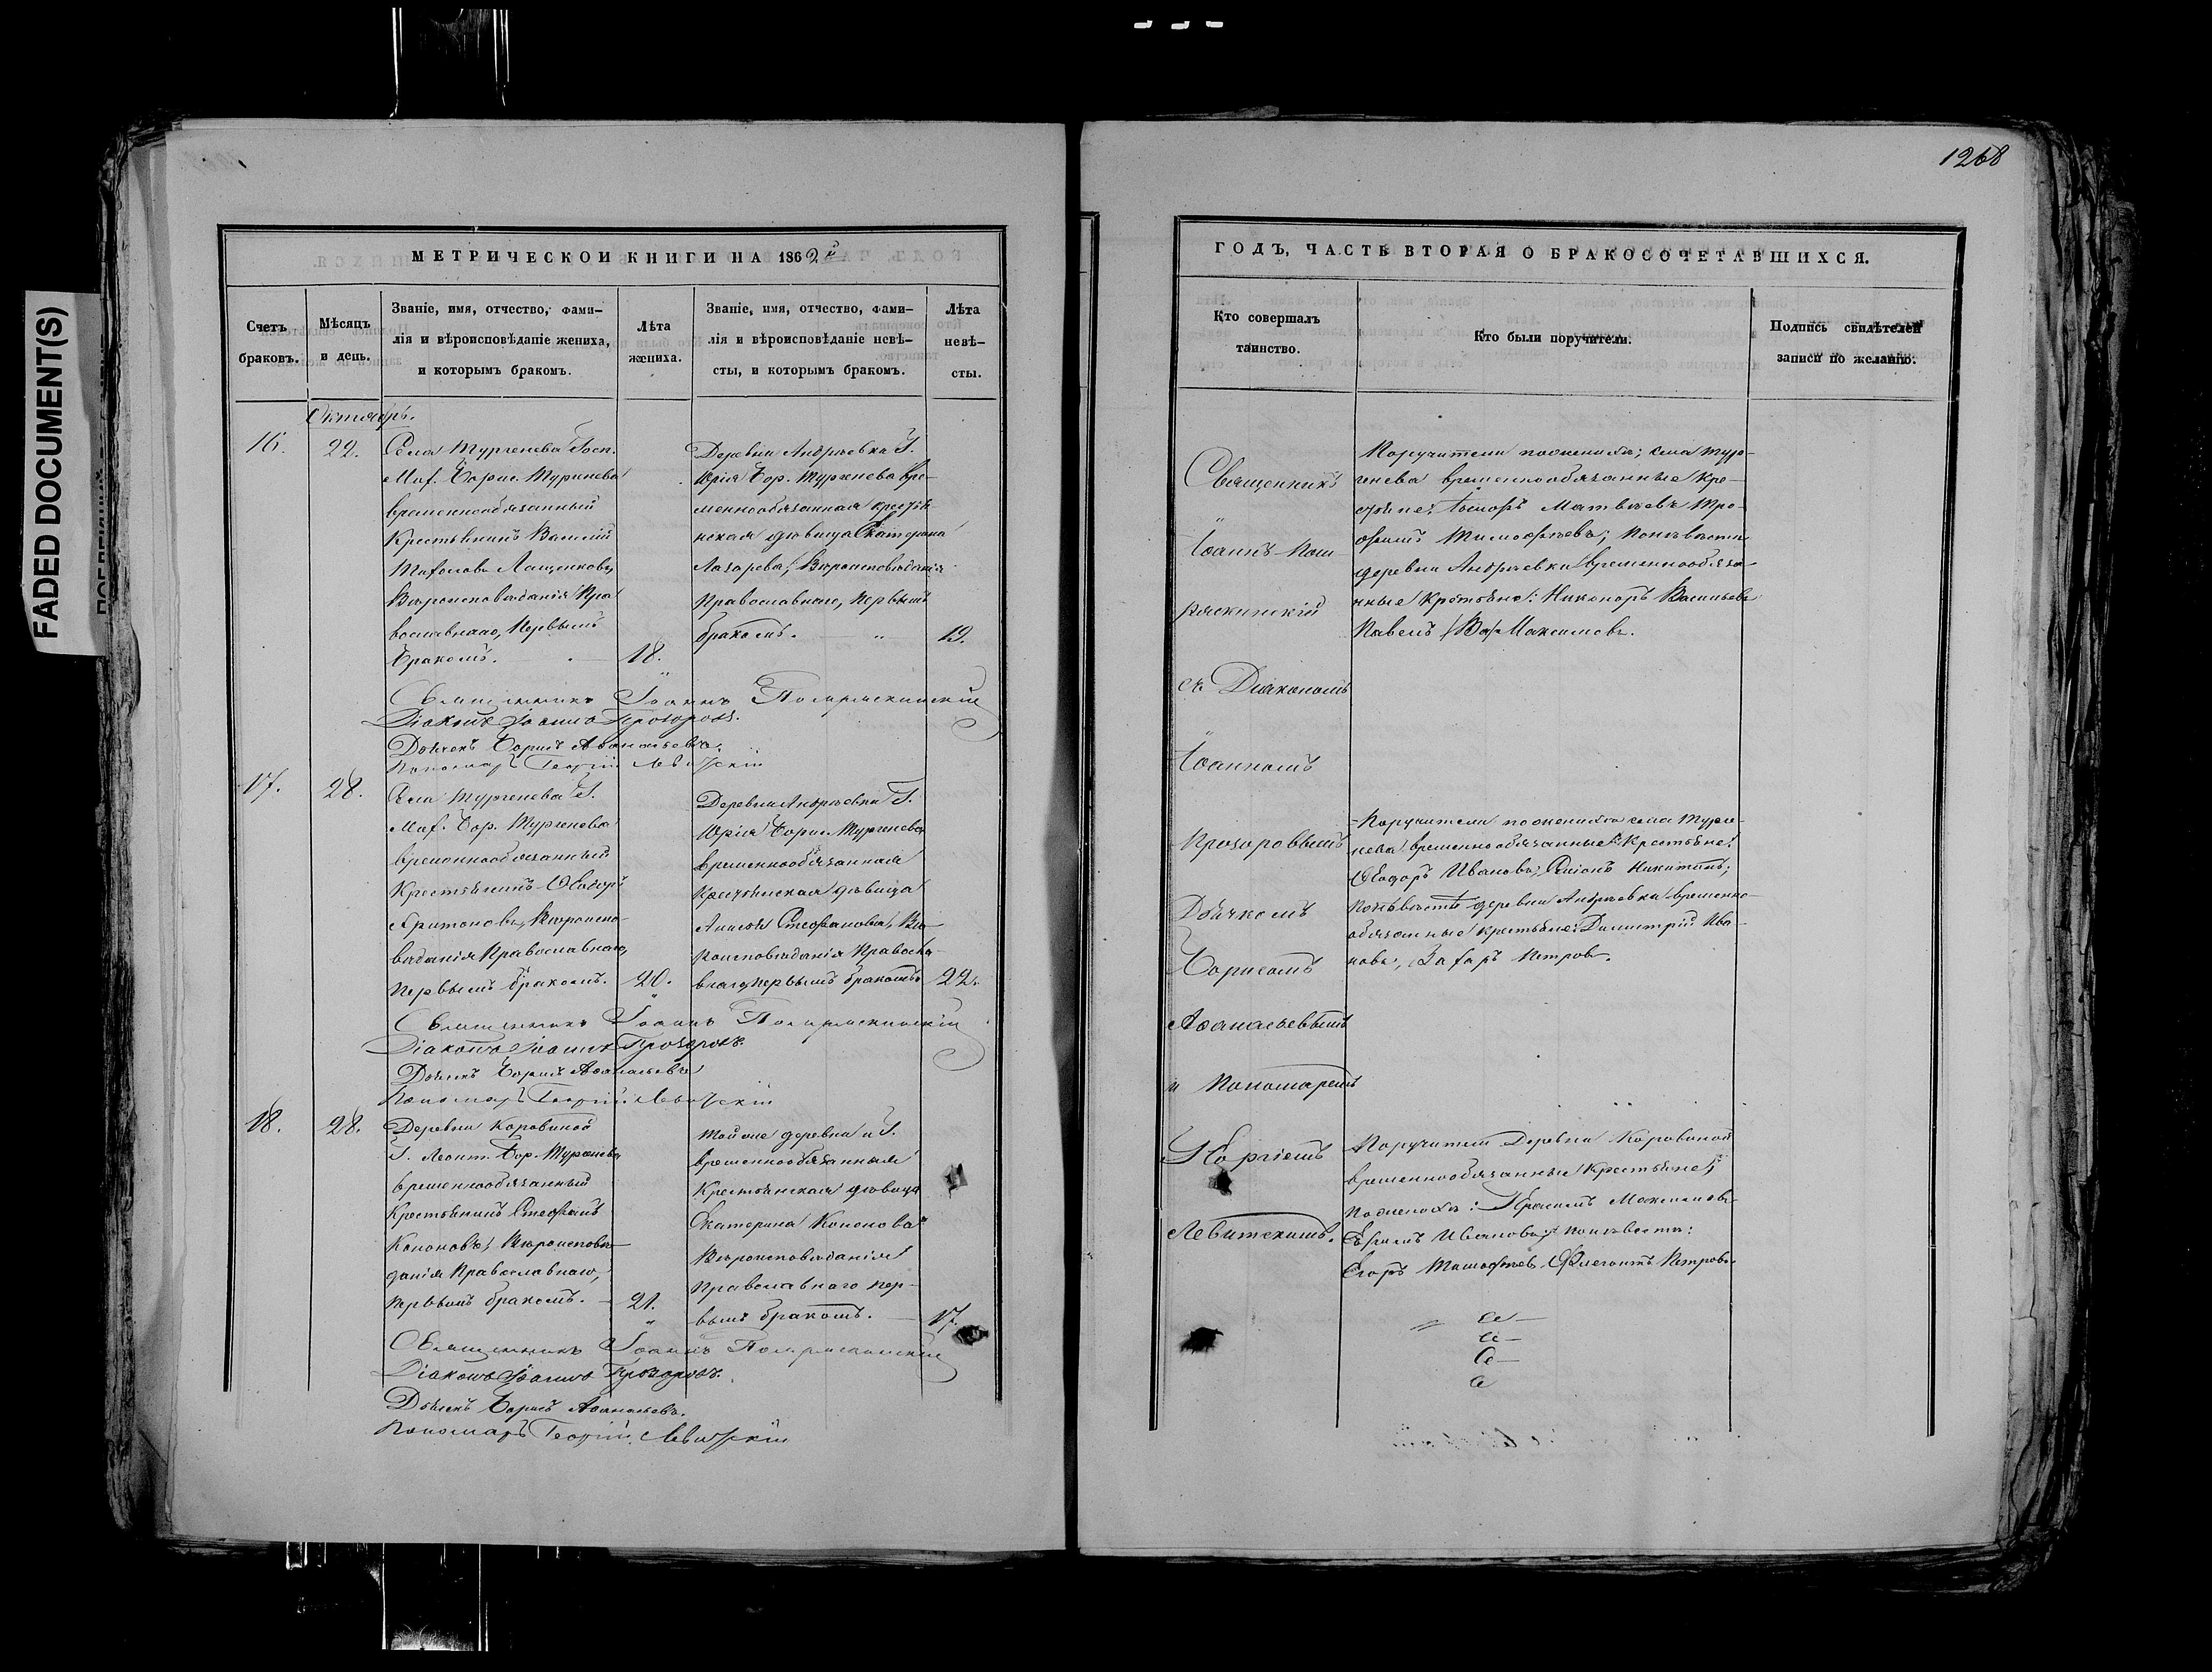 FADED DOCUMENT(S)
1268
МЕТРИЧЕСКОИ КНИГИ НА 1862й
Счетъ браковъ.
Мѣсяцъ и день.
Званіе, имя, отчество, фами-
лія и вѣроисповѣданіе жениха,
и которымъ бракомъ.
Лѣта жениха.
Званіе, имя, отчество, фами-
лія и вѣроисповѣданіе невѣ-
сты, и которымъ бракомъ.
Лѣта невѣ-
сты.
Октябрь.
16.
22.
Села Тургенева Госп.
Борис. Тургенева
временнообязанный
Крестьянинъ Василій
Лащенковъ,
Вѣроисповѣданія Пра
вославнаго, Первымъ
бракомъ.
18.
Деревни Андреевки Г.
Юрія Бор. Тургенева вре-
меннообязанная кресть
нская дѣвица Екатерина
Лазарева, Вѣроисповѣданія
Православнаго, Первымъ
бракомъ.
19.
Священникъ Іоаннъ
Діаконъ Іоаннъ Прозоровъ.
Дьячекъ Борисъ Аѳанасьевъ.
Пономарь Георгій Левитскій
17.
28.
Села Тургенева Г.
Бор. Тургенева
временнообязанный
Крестьянинъ Ѳеодоръ
Харитоновъ, Вѣроиспо-
вѣданія Православнаго,
Первымъ бракомъ.
20.
Деревни Андреевки Г.
Юрія Борис. Тургенева
временнообязанная
Крестьянская дѣвица
Стефанова, Вѣ
роисповѣданія Правосла-
внаго, первымъ бракомъ
22.
Священникъ Іоаннъ
Діаконъ Іоаннъ Прозоровъ.
Дьячекъ Борисъ Аѳанасьевъ
Пономарь Георгій Левитскій
18.
28.
Деревни Коровиной
Г. Леонт. Бор. Тургенева
временнообязанный
Крестьянинъ Стефанъ
Кононовъ, Вѣроисповѣ-
данія Православнаго,
первымъ бракомъ.
21.
Той же деревни и Г.
временнообязанная
Крестьянская дѣвица
Екатерина Кононова
Вѣроисповѣданія
Православнаго пер-
вымъ бракомъ.
17.
Священникъ Іоаннъ
Діаконъ Іоаннъ Прозоровъ.
Дьячекъ Борисъ Аѳанасьевъ.
Пономарь Георгій Левитскій
ГОДЪ, ЧАСТЬ ВТОРАЯ О БРАКОСОЧЕТАВШИХСЯ.
Кто совершалъ
таинство.
Кто были поручители.
Подпись свидѣтелей
записи по желанію.
Священникъ
Іоаннъ
съ Діакономъ
Іоанномъ
Прозоровымъ
Дьячкомъ
Борисомъ
Аѳанасьевымъ
и Пономаремъ
Георгіемъ
Левитскимъ.
Поручители по женихѣ; села Тур-
генева временнообязанные Кре-
стьяне: Матвѣевъ Тро-
фимъ Тимофѣевъ; По невѣстѣ
деревни Андреевки временнообяза-
нные Крестьяне: Никоноръ Васильевъ
Павелъ Максимовъ.
Поручители по женихѣ села Турге-
нева временнообязанные Крестьяне:
Ѳеодоръ Ивановъ, Никитинъ;
По невѣстѣ деревни Андреевки временно-
обязанные крестьяне: Димитрій Ива-
новъ, Захаръ Петровъ.
Поручители Деревни Коровиной
временнообязанные Крестьяне;
По женихѣ: Максимовъ
Ефимъ Ивановъ; по невѣстѣ:
Егоръ Тимофеевъ, Флегонтъ Петровъ.